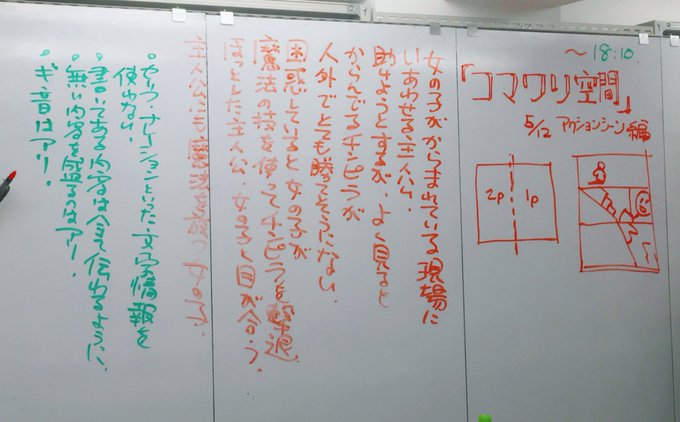 〜18:10
「コマワリ空間」
5/12 アクションシーン編
2P 1P
女の子がからまれている現場に
いあわせる主人公、
助けようとするが、よく見ると
からんでるチンピラが
人外でとても勝てそうにない。
困惑していると女の子が
魔法の技を使ってチンピラを撃退、
ほっとした主人公、女の子と目が合う。
主人公にも魔法を 女の子、
・セリフ、ナレーションといった文字情報を
使わない。
・書いてある内容は全て伝わるように、
・無い内容を盛るのはアリ。
・ギ音はアリ。